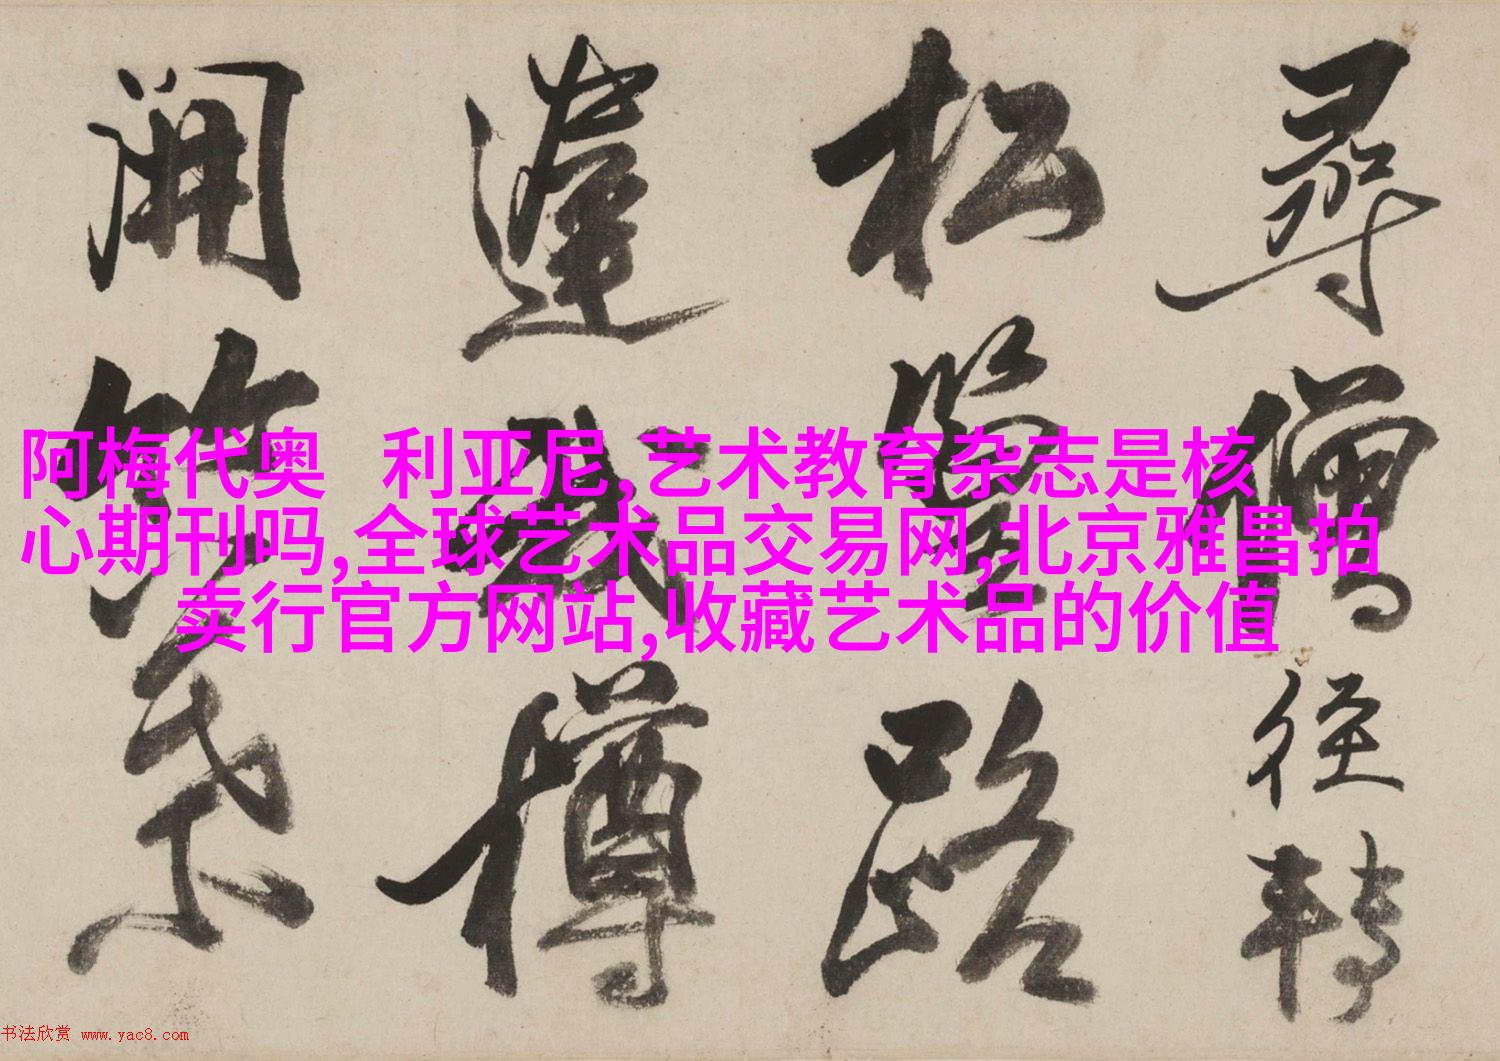 尋僧徑轉
松路
樽
開
阿梅代奥 利亚尼,艺术教育杂志是核
心期刊吗,全球艺术品交易网,北京雅昌拍
卖行官方网站,收藏艺术品的价值
书法欣赏 www.yac8.com